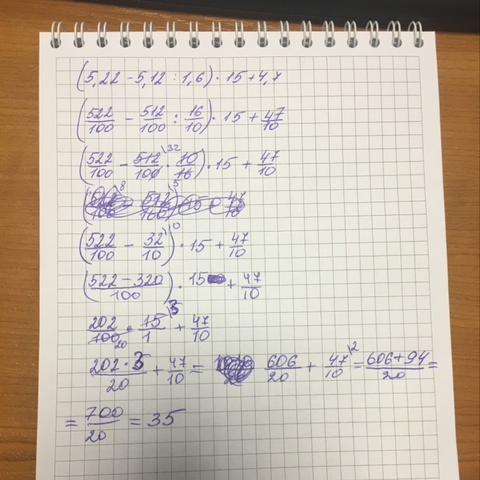 (5,22 - 5,12 : 1,6) · 15 + 4,7
(522/100 - 512/100 : 16/10) · 15 + 47/10
(522/100 - 512\32/100 · 10/16) · 15 + 47/10
(522/100 - 32\10/10) · 15 + 47/10
((522 - 320)/100) · 15 + 47/10
202/100 20 · 15\3/1 + 47/10
202·3/20 + 47/10 = 606/20 + 47\2/10 = 606+94/20 =
= 700/20 = 35